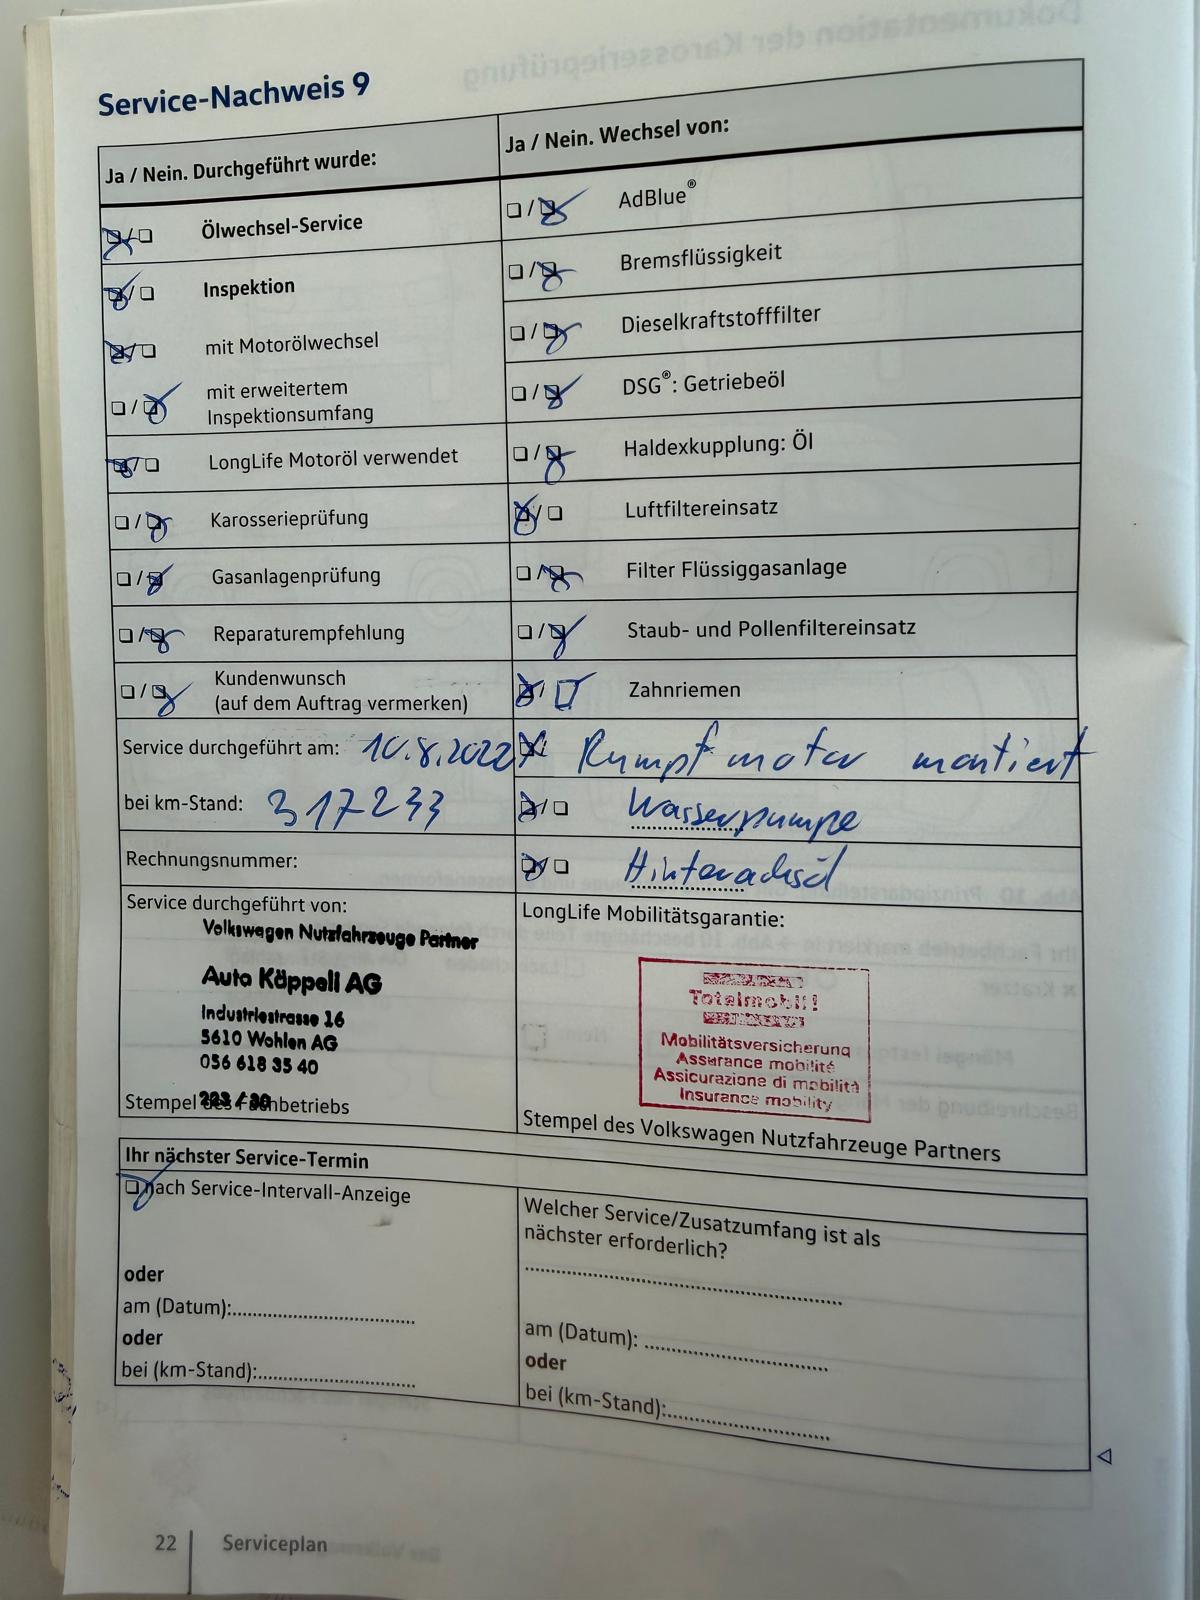 Service-Nachweis 9
Ja / Nein. Durchgeführt wurde:
Ölwechsel-Service
Inspektion
mit Motorölwechsel
mit erweitertem
Inspektionsumfang
LongLife Motoröl verwendet
Karosserieprüfung
Gasanlagenprüfung
Reparaturempfehlung
Kundenwunsch
(auf dem Auftrag vermerken)
Service durchgeführt am: 10.8.2022
bei km-Stand: 317233
Rechnungsnummer:
Service durchgeführt von:
Volkswagen Nutzfahrzeuge Partner
Auto Käppeli AG
Industriestrasse 16
5610 Wohlen AG
056 618 35 40
Stempel des Fachbetriebs
Ja / Nein. Wechsel von:
AdBlue®
Bremsflüssigkeit
Dieselkraftstofffilter
DSG®: Getriebeöl
Haldexkupplung: Öl
Luftfiltereinsatz
Filter Flüssiggasanlage
Staub- und Pollenfiltereinsatz
Zahnriemen
Rumpfmotor montiert
Wasserpumpe
Hinterachsöl
LongLife Mobilitätsgarantie:
Totalmobil!
Mobilitätsversicherung
Assurance mobilité
Assicurazione di mobilità
Insurance mobility
Stempel des Volkswagen Nutzfahrzeuge Partners
Ihr nächster Service-Termin
nach Service-Intervall-Anzeige
oder
am (Datum):
oder
bei (km-Stand):
Welcher Service/Zusatzumfang ist als
nächster erforderlich?
am (Datum):
oder
bei (km-Stand):
22 Serviceplan